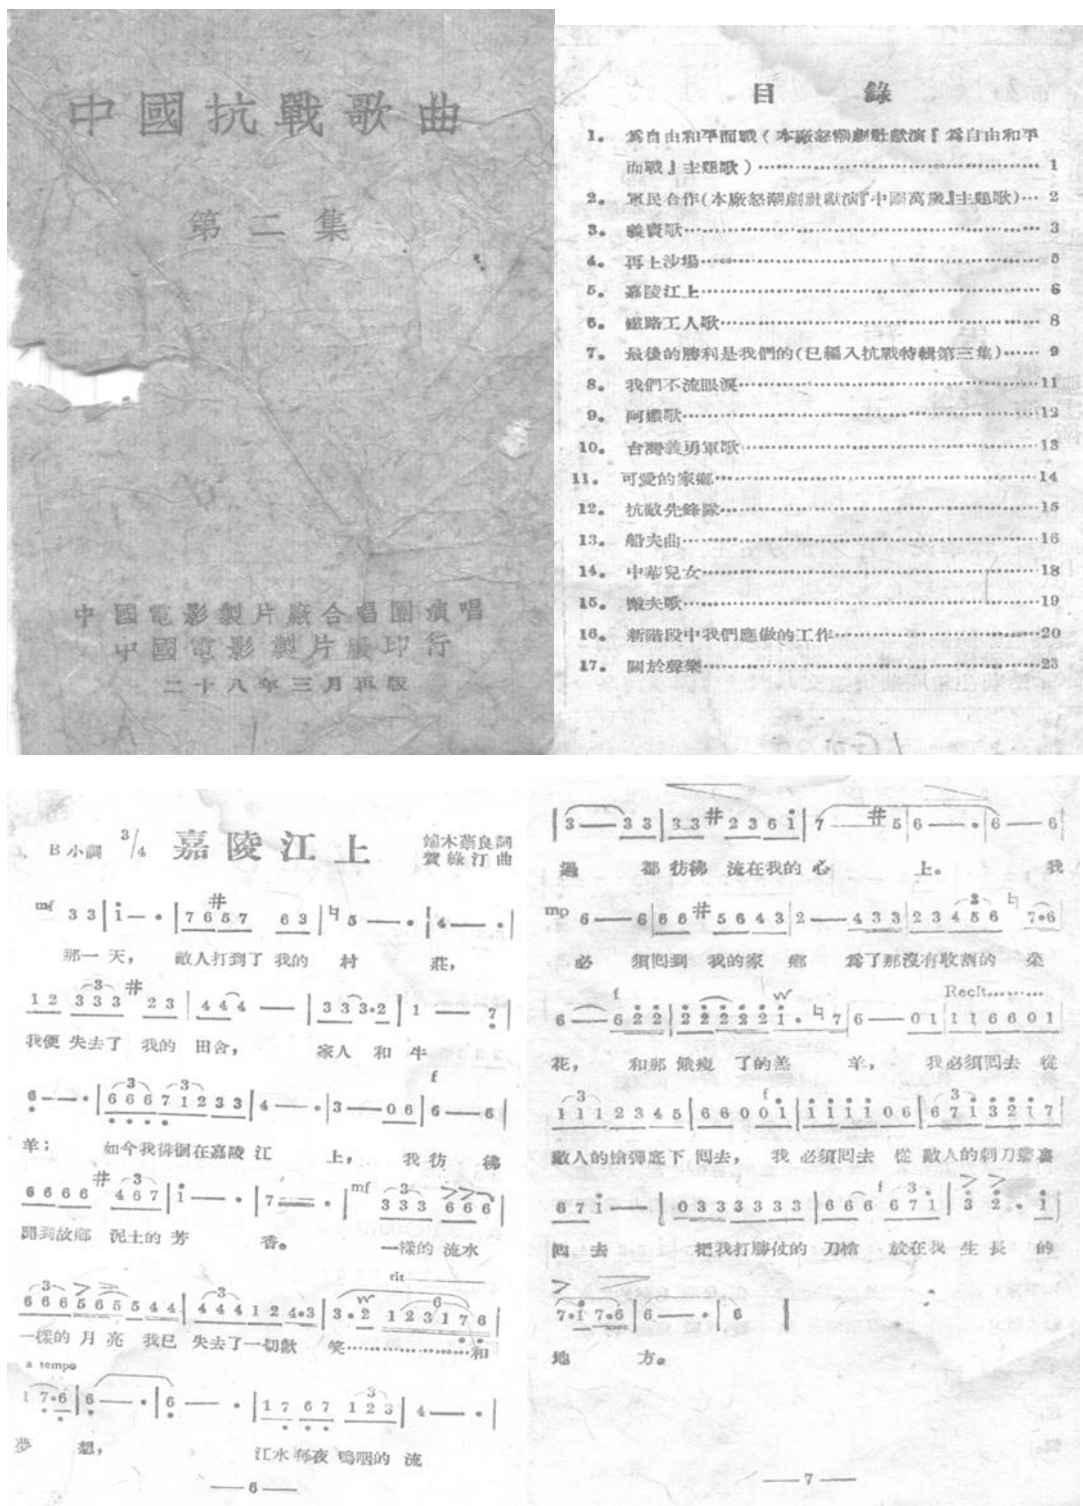 中國抗戰歌曲
第二集
中國電影製片廠合唱團演唱
中國電影製片廠印行
二十八年三月再版
目錄
1。 爲自由和平而戰(本廠怒潮劇社獻演『爲自由和平
而戰』主題歌)……1
2。 軍民合作(本廠怒潮劇社獻演『中國萬歲』主題歌)…2
3。 義賣歌……3
4。 再上沙場……5
5。 嘉陵江上……6
6。 鐵路工人歌……8
7。 最後的勝利是我們的(已編入抗戰特輯第三集)……9
8。 我們不流眼淚……11
9。 阿儂歌……12
10。 台灣義勇軍歌……13
11。 可愛的家鄉……14
12。 抗敵先鋒隊……15
13。 船夫曲……16
14。 中華兒女……18
15。 歌……19
16。 新階段中我們應做的工作……20
17。 關於聲樂……23
B小調 3/4 嘉陵江上 端木蕻良詞
賀綠汀曲
mf 3 3 | i — · | 7 #6 5 7 6 3 | ♮5 — · | 4 — · |
那一天, 敵人打到了我的 村 莊,
1 2 3 3 3 #2 3 | 4 4 4 — | 3 3 3·2 | 1 — 7 |
我便失去了 我的 田舍, 家人 和 牛
f
6 — · | 6 6 6 7 1 2 3 3 | 4 — · | 3 — 0 6 | 6 — 6 |
羊; 如今我徘徊在嘉陵江 上, 我彷 彿
6 6 6 6 #4 6 7 | i — · | 7 — · | mf 3 3 3 6 6 6 |
聞到故鄉 泥土的芳 香。 一樣的 流水
rit
6 6 6 5 6 5 5 4 4 | 4 4 4 1 2 4·3 | 3·2 1 2 3 1 7 6 |
一樣的 月 亮 我已 失去了一切歡 笑……和
a tempo
1 7·6 | 6 — · | 6 — · | 1 7 6 7 1 2 3 | 4 — · |
夢 想, 江水每夜 嗚咽的 流
— 6 —
| 3 — 3 3 | 3 3 #2 3 6 i | 7 — #5 | 6 — · | 6 — 6 |
過 都 彷彿 流在我的 心 上。 我
mp 6 — 6 | 6 6 #5 6 4 3 | 2 — 4 3 3 | 2 3 4 5 6 ♮7·6 |
必 須回到 我的家 鄉 爲了那沒有收割的 菜
f Recit………
6 — 6 2 2 | 2 2 2 2 2 i · ♮7 | 6 — 0 1 | 1 1 6 6 0 1 |
花, 和那 餓瘦 了的羔 羊, 我必須回去 從
f
1 1 1 2 3 4 5 | 6 6 0 0 i | i i i i 0 6 | 6 7 i 3 2 i 7 |
敵人的槍彈底下 回去, 我 必須回去 從 敵人的刺刀叢裏
f
6 7 i — | 0 3 3 3 3 3 3 | 6 6 6 6 7 i | 3 2 · i |
回 去 把我打勝仗的 刀槍 放在我 生 長 的
7·i 7·6 | 6 — · | 6 |
地 方。
— 7 —